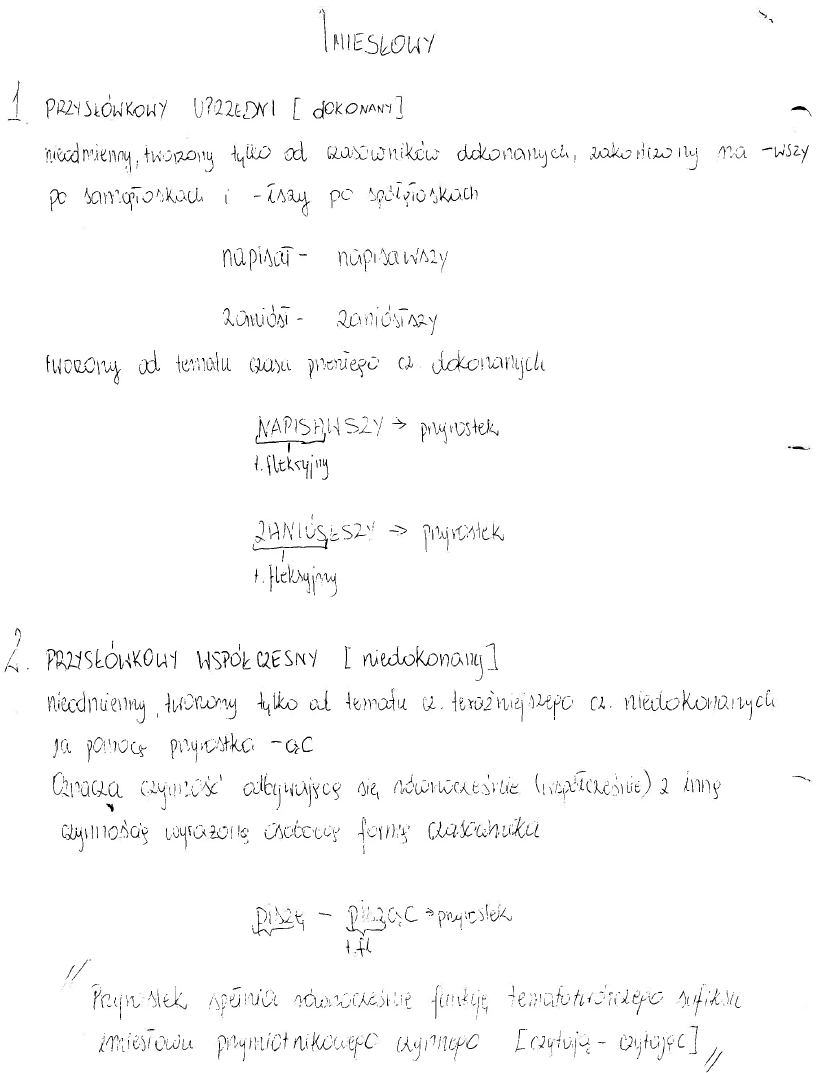 IMIESŁOWY
1. PRZYSŁÓWKOWY UPRZEDNI [DOKONANY]
nieodmienny, tworzony tylko od czasowników dokonanych, zakończony na -WSZY
po samogłoskach i -łszy po spółgłoskach
napisał - napisawszy
zaniósł - zaniósłszy
tworzony od tematu czasu przeszłego cz. dokonanych
NAPISAWSZY → przyrostek
t. fleksyjny
ZANIÓSŁSZY → przyrostek
t. fleksyjny
2. PRZYSŁÓWKOWY WSPÓŁCZESNY [niedokonany]
nieodmienny, tworzony tylko od tematu cz. teraźniejszego cz. niedokonanych
za pomocą przyrostka -ąc
Oznacza czynność odbywającą się równocześnie (współcześnie) z inną
czynnością wyrażoną osobową formą czasownika
piszę - pisząc → przyrostek
t. fl
// Przyrostek spełnia równocześnie funkcję tematotwórczego sufiksu
imiesłowu przymiotnikowego czynnego [czytają - czytając] //